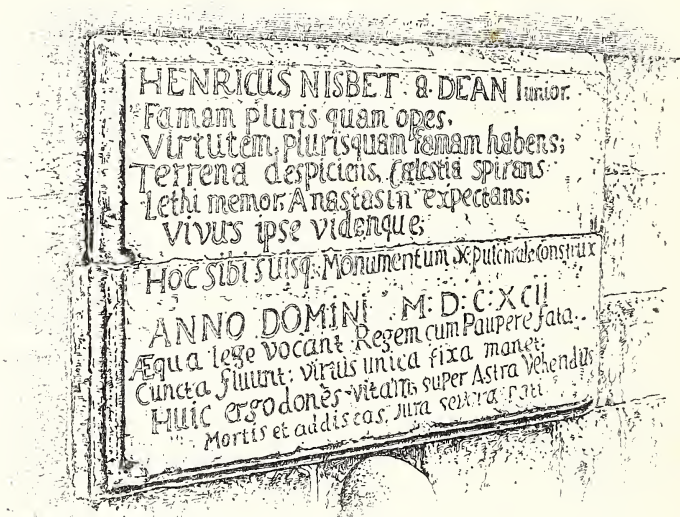 HENRICUS NISBET. a. DEAN Iunior.
Famam pluris quam opes,
Virtutem, plurisquam famam habens;
Terrena despiciens, Cœlestia spirans
Lethi memor. Anastasin expectans;
Vivus ipse vidensque;
Hoc sibi suisq: Monumentum Sepulchrale Construx
ANNO DOMINI M·D·C·XCII
Æqua lege vocant Regem cum Paupere fata.
Cuncta fluunt: virtus unica fixa manet:
HUIC ergo dones vitam, super Astra Vehendus
Mortis et addiscas, Jura severa pati